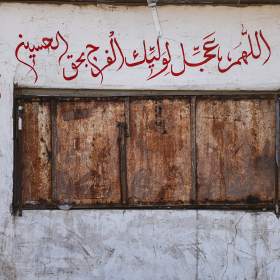 اللهم عجل لوليك الفرج بحق الحسين